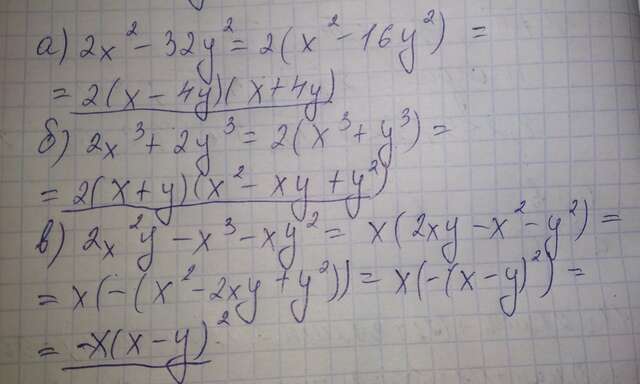 а) 2x² - 32y² = 2(x² - 16y²) =
= 2(x - 4y)(x + 4y)
б) 2x³ + 2y³ = 2(x³ + y³) =
= 2(x + y)(x² - xy + y²)
в) 2x²y - x³ - xy² = x(2xy - x² - y²) =
= x(-(x² - 2xy + y²)) = x(-(x - y)²) =
= -x(x - y)²